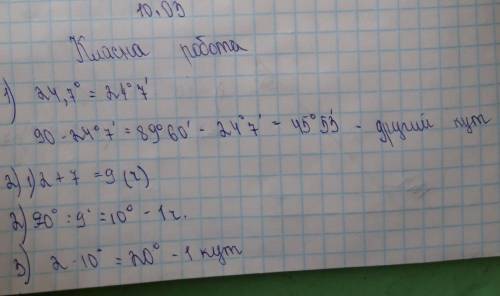 10.03
Класна робота
1) 24,7° = 24° 7'
90 - 24° 7' = 89° 60' - 24° 7' = 45° 53' - другий кут
2) 1) 2 + 7 = 9 (ч)
2) 90° : 9 = 10° - 1 ч.
3) 2 · 10° = 20° - 1 кут